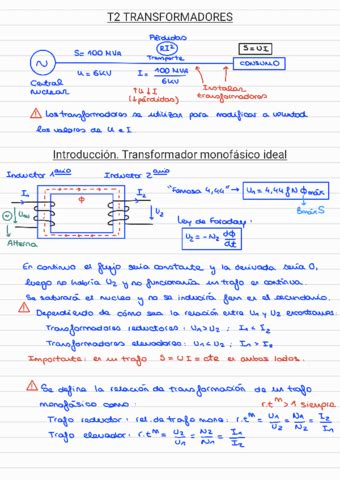 T2 TRANSFORMADORES
Pérdidas
RI²
S = 100 MVA
Transporte
S = U I
CONSUMO
U = 6KV
I = 100 MVA / 6KV
Central nuclear
↑U ↓I
(↓pérdidas)
Instalar transformadores
⚠ Los transformadores se utilizan para modificar a voluntad
los valores de U e I.
Introducción. Transformador monofásico ideal
Inductor 1ario
Inductor 2ario
I1
Φ
I2
U2
Alterna
"Famosa 4,44" → U1 = 4,44 f N Φmáx
Bmáx S
Ley de Faraday:
U2 = -N2 dΦ/dt
En continua el flujo sería constante y la derivada sería 0,
luego no habría U2 y no funcionaría un trafo en continua.
Se saturará el núcleo y no se inducirá fem en el secundario.
⚠ Dependiendo de cómo sea la relación entre U1 y U2 encontramos:
Transformadores reductores: U1 > U2 ; I1 < I2
Transformadores elevadores: U1 < U2 ; I1 > I2
Importante: en un trafo S = U I = cte en ambos lados.
⚠ Se define la relación de transformación de un trafo
monofásico como: r.tᵐ > 1 siempre
Trafo reductor: rel. de trafo mono: r.tᵐ = U1/U2 = N1/N2 = I2/I1
Trafo elevador: r.tᵐ = U2/U1 = N2/N1 = I1/I2